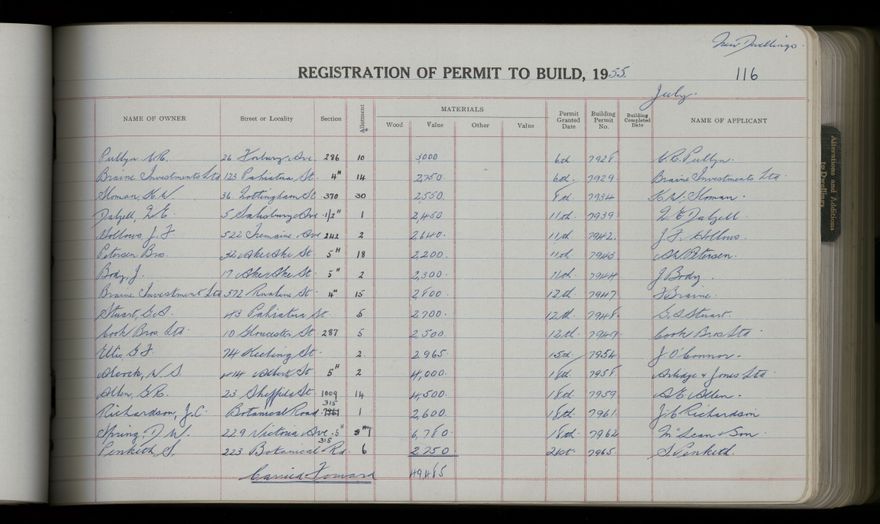 New Dwellings.
REGISTRATION OF PERMIT TO BUILD, 1955. 116
July.
NAME OF OWNER Street or Locality Section Allotment MATERIALS Permit Granted Date Building Permit No. Building Completed Date NAME OF APPLICANT
Wood Value Other Value
Pullyn 26 Ave 286 10 3000 6th 7928 Pullyn.
Braine Investments Ltd 123 Pahiatua St. 4" 14 2,750 6th 7929 Braine Investments Ltd
Sloman K.W. 36 Nottingham St 370 30 2,550 8th 7934 K.W. Sloman.
Dalzell, 5 Salisbury Ave 1/2" 1 2,450 11th 7939 Dalzell
Hollows, J.F 522 Tremaine Ave 242 2 2,640. 11th 7942. J.F. Hollows.
Petersen Bros. Ake Ake St. 5" 18 2,200 11th 7943 Petersen.
Body, J. 17 Ake Ake St 5" 2 2,300 11th 7944 J Body.
Braine Investment Ltd 572 St. 4" 15 2800 12th 7947 Braine.
Stuart, G.S. Pahiatua St 6 2700 12th 7948. G.S Stuart.
Cook Bros. Ltd 10 Gloucester St. 287 5 2,500 12th 7949 Cook Bros Ltd
Ellis, G.F. 74 Keeling St. 2. 2,965 15th 7954 J O'Connor.
Alcock, N.S Albert St 5" 2 4,000 18th 7958 & Jones Ltd
Allen, 23 Sheffield St 1009 14 4,500 18th 7959 Allen.
Richardson, J.C. Botanical Road 315 1 2,600 18th 7961 J.C. Richardson
Spring, D.W. 229 Victoria Ave 5" 6,780. 18th 7962 McLean & Son.
Penketh, S. 223 Botanical Rd 315 6 2750 21st 7965. S. Penketh
Carried Forward 49485
Alterations and Additions to Dwellings